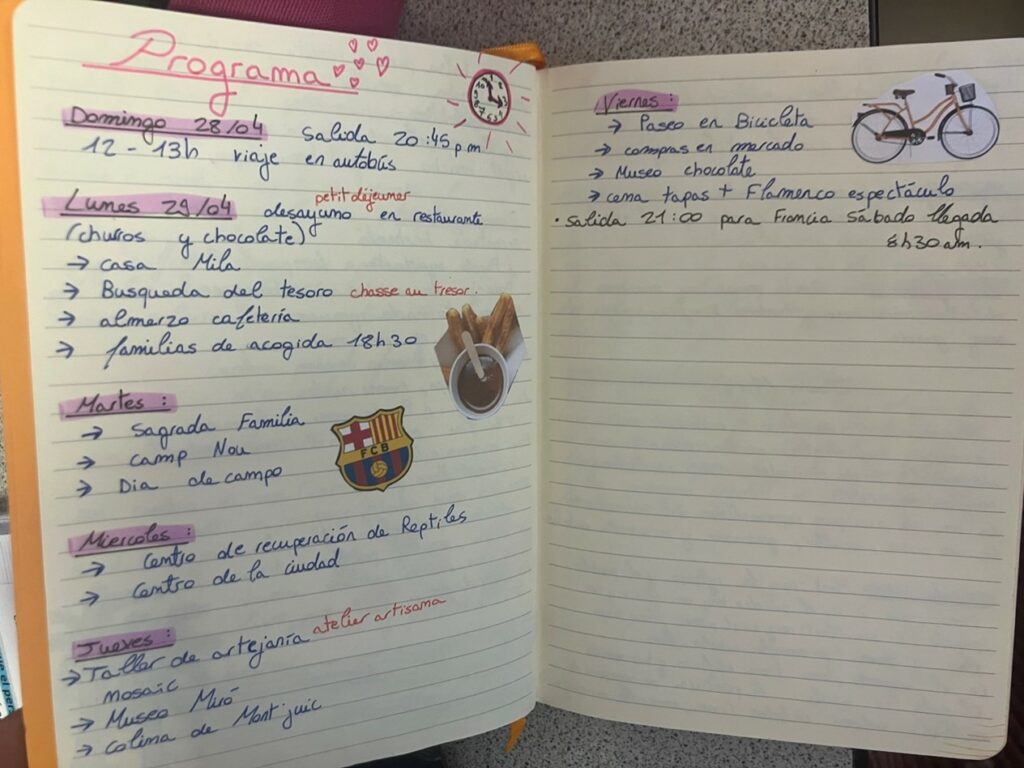 Programa
Domingo 28/04 Salida 20:45 pm
12 - 13h viaje en autobús
petit déjeuner
Lunes 29/04 desayuno en restaurante
(churros y chocolate)
→ casa Mila
→ Busqueda del tesoro chasse au tresor.
→ almerzo cafetería
→ familias de acogida 18h30
Martes :
→ Sagrada Familia
→ camp Nou
→ Dia de campo
FCB
Miercoles :
→ Centro de recuperación de Reptiles
→ Centro de la ciudad
Jueves :
→ Taller de artejanía atelier artisana
mosaïc
→ Museo Miró
→ colina de Montjuic
Viernes :
→ Paseo en Bicicleta
→ compras en mercado
→ Museo chocolate
→ cena tapas + Flamenco espectáculo
• Salida 21:00 para Francia Sábado llegada
8h30am.